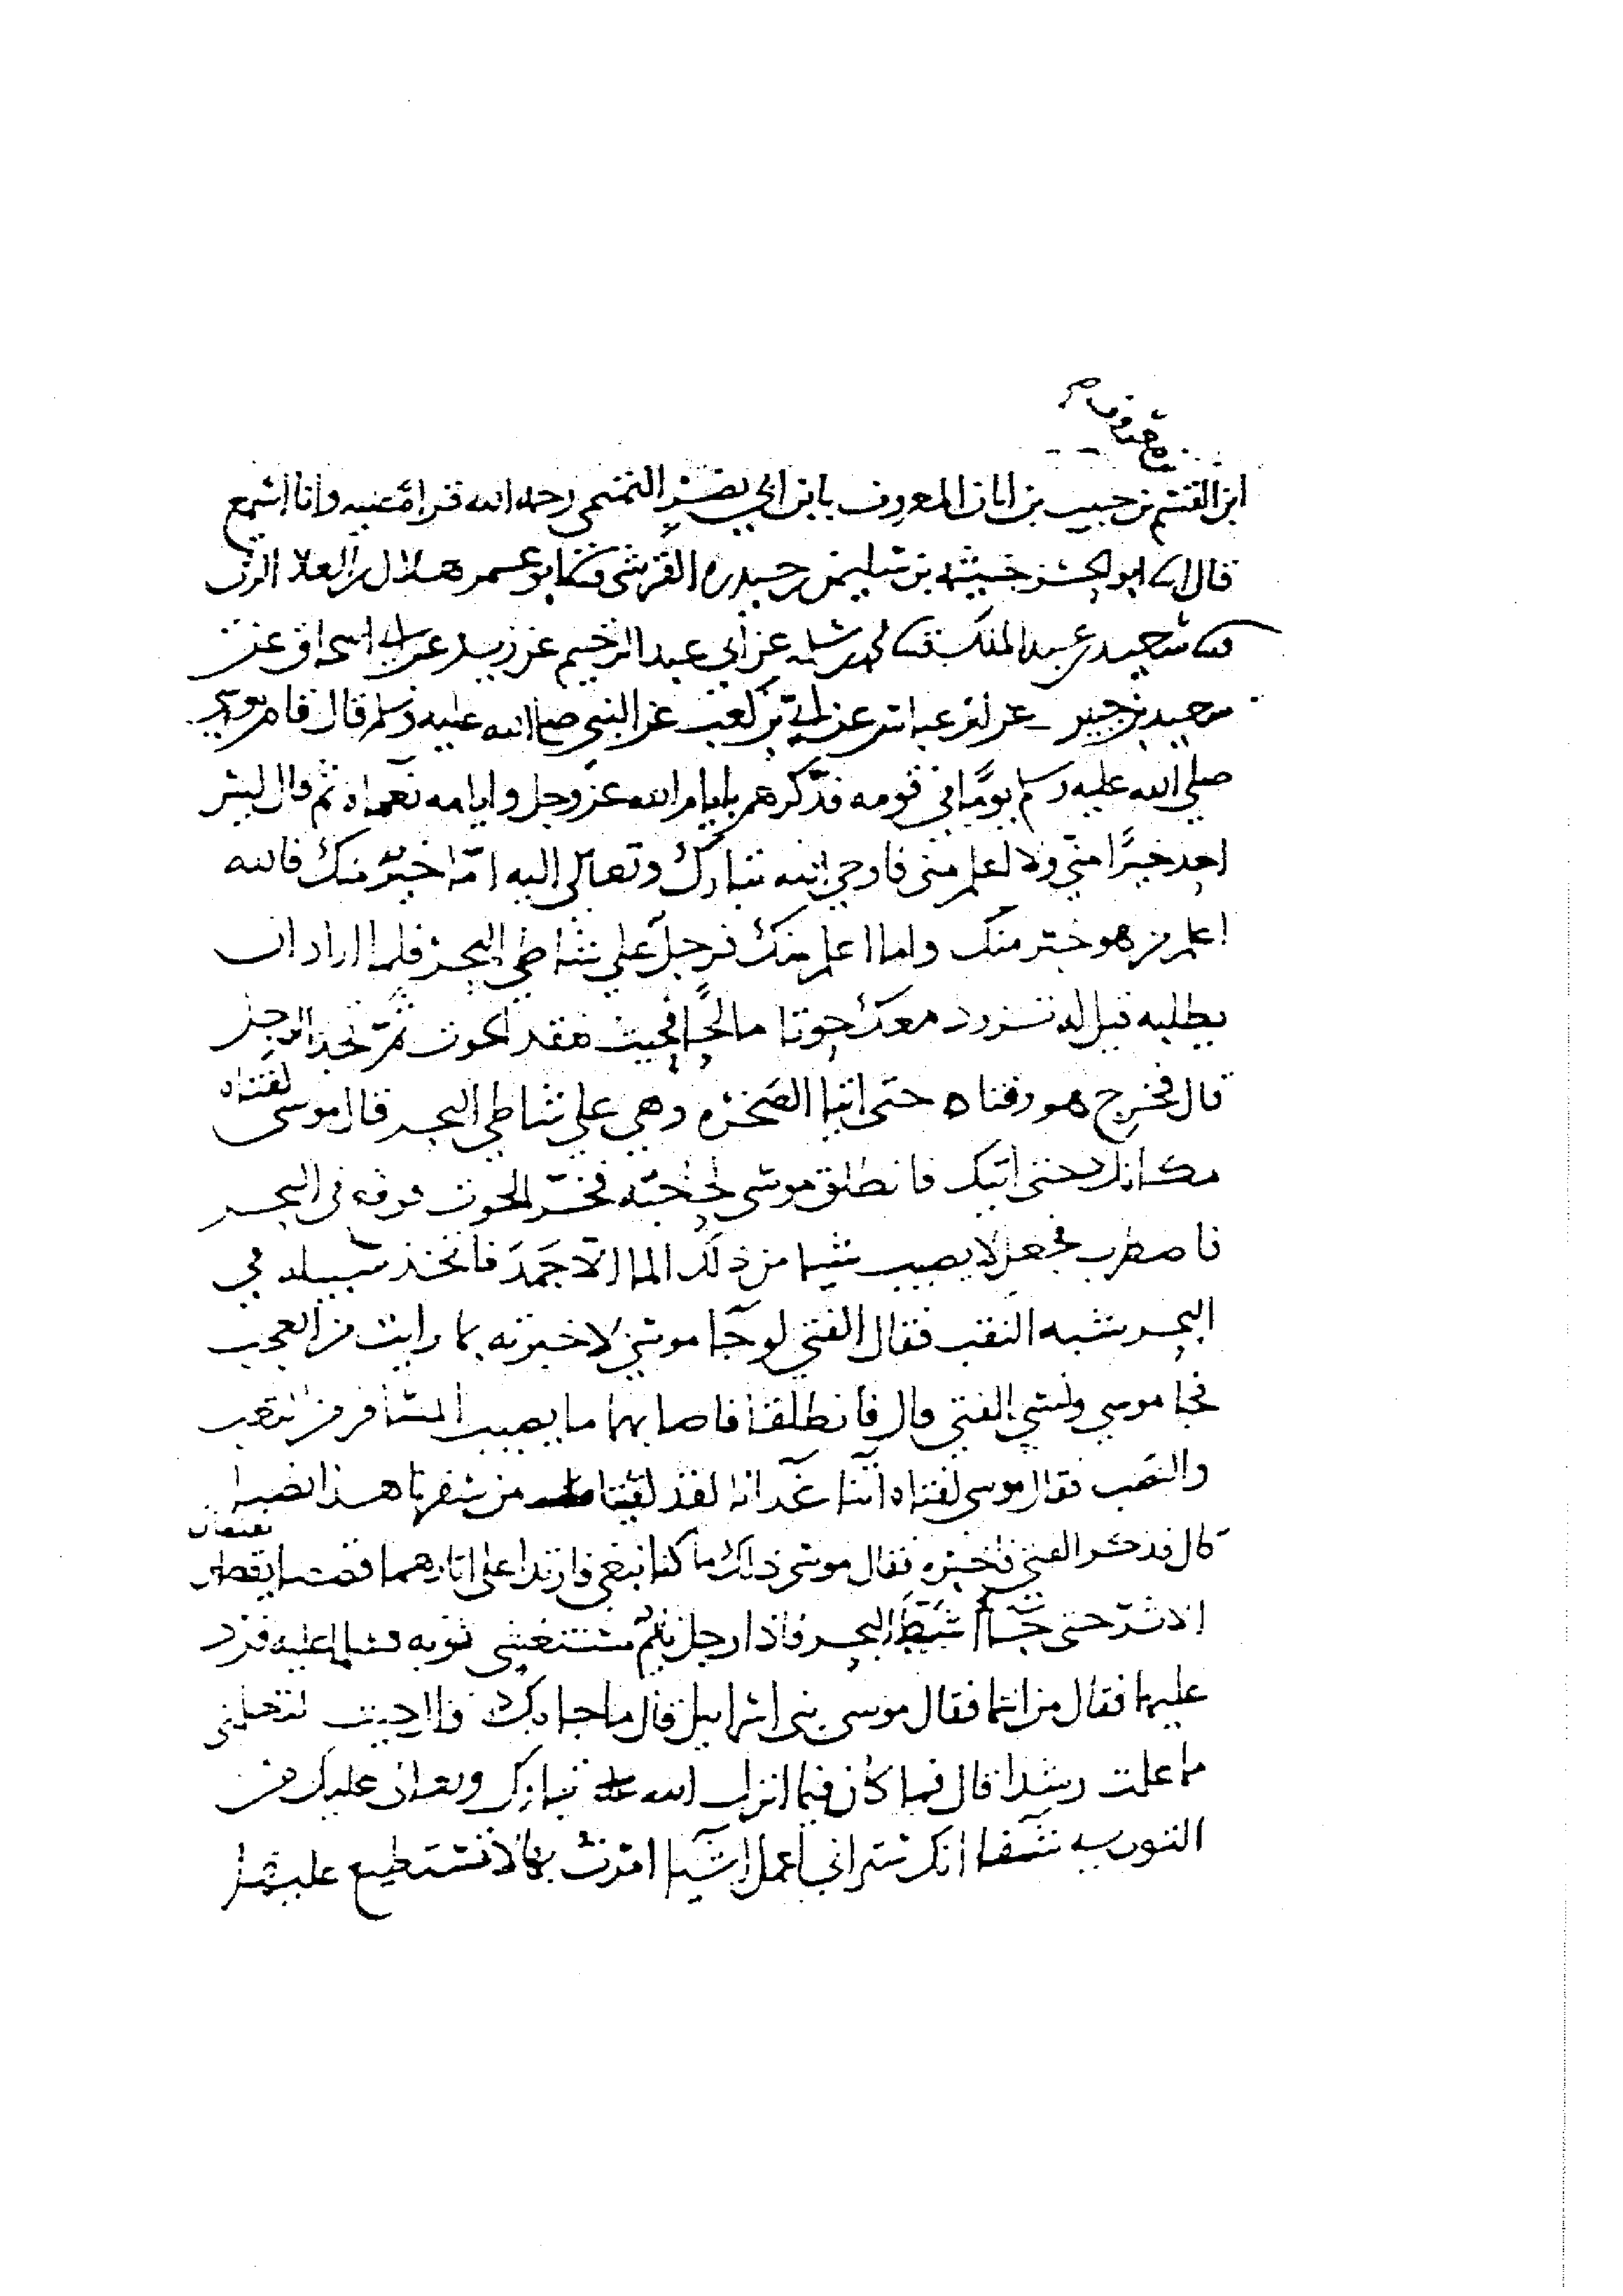 ابن القسم بن حبيب بن ابان المعروف بابن ابي نصر التميمي رحمه الله قراة عليه وانا اسمع
قال انا ابو الحسن خيثمة بن سليمن بن حيدره القرشي ثنا ابو عمر هلال بن العلا الرقي
ثنا سعيد بن عبد الملك ثنا محمد بن سلمه عن ابي عبد الرحيم عن زيد عن ابي اسحاق عن
سعيد بن جبير عن ابن عباس عن ابي بن كعب عن النبي صلى الله عليه وسلم قال قام موسى
صلي الله عليه وسلم يوما في قومه فذكرهم بايام الله عز وجل وايامه نعماه ثم قال ليس
احد خيرا مني ولا اعلم مني فاوحي الله تبارك وتعالى اليه اما خير منك فالله
اعلم من هو خير منك واما اعلم منك فرجل علي شاطي البحر فلما اراد ان
يطلبه قيل له تزود معك حوتا مالحا فحيث تفقد الحوت ثم تجد الرجل
قال فخرج هو وفتاه حتى اتيا الصخره وهي علي شاطي البحر قال موسى لفتاه
مكانك حتى اتيك فانطلق موسى لحاجته فخر الحوت فوقه في البحر
فاضطرب فجعل لا يصيب شيا من ذلك الما الا جمد فاتخذ سبيله في
البحر شبه النقب فقال الفتي لو جا موسي لاخبرته بما رايت من العجب
فجا موسي ونسي الفتي قال فانطلقا فاصابهما ما يصيب المسافر من التعب
والنصب فقال موسى لفتاه اتنا غدانا لقد لقينا من سفرنا هذا نصبا
قال فذكر الفتي فاخبره فقال موسى ذلك ما كنا نبغي فارتدا على اثارهما قصصا يقصان
الاثر حتى جاا شط البحر فاذا رجل نايم مستغشي ثوبه فسلما عليه فرد
عليهما فقال من انتما فقال موسى بني اسرايل قال ما جا بك قال جيت لتعلمني
مما علمت رشدا قال فما كان فيما انزل الله تبارك وتعالى عليك من
التوريه شفا انك ستراني اعمل اشيا امرت بها لا تستطيع عليها